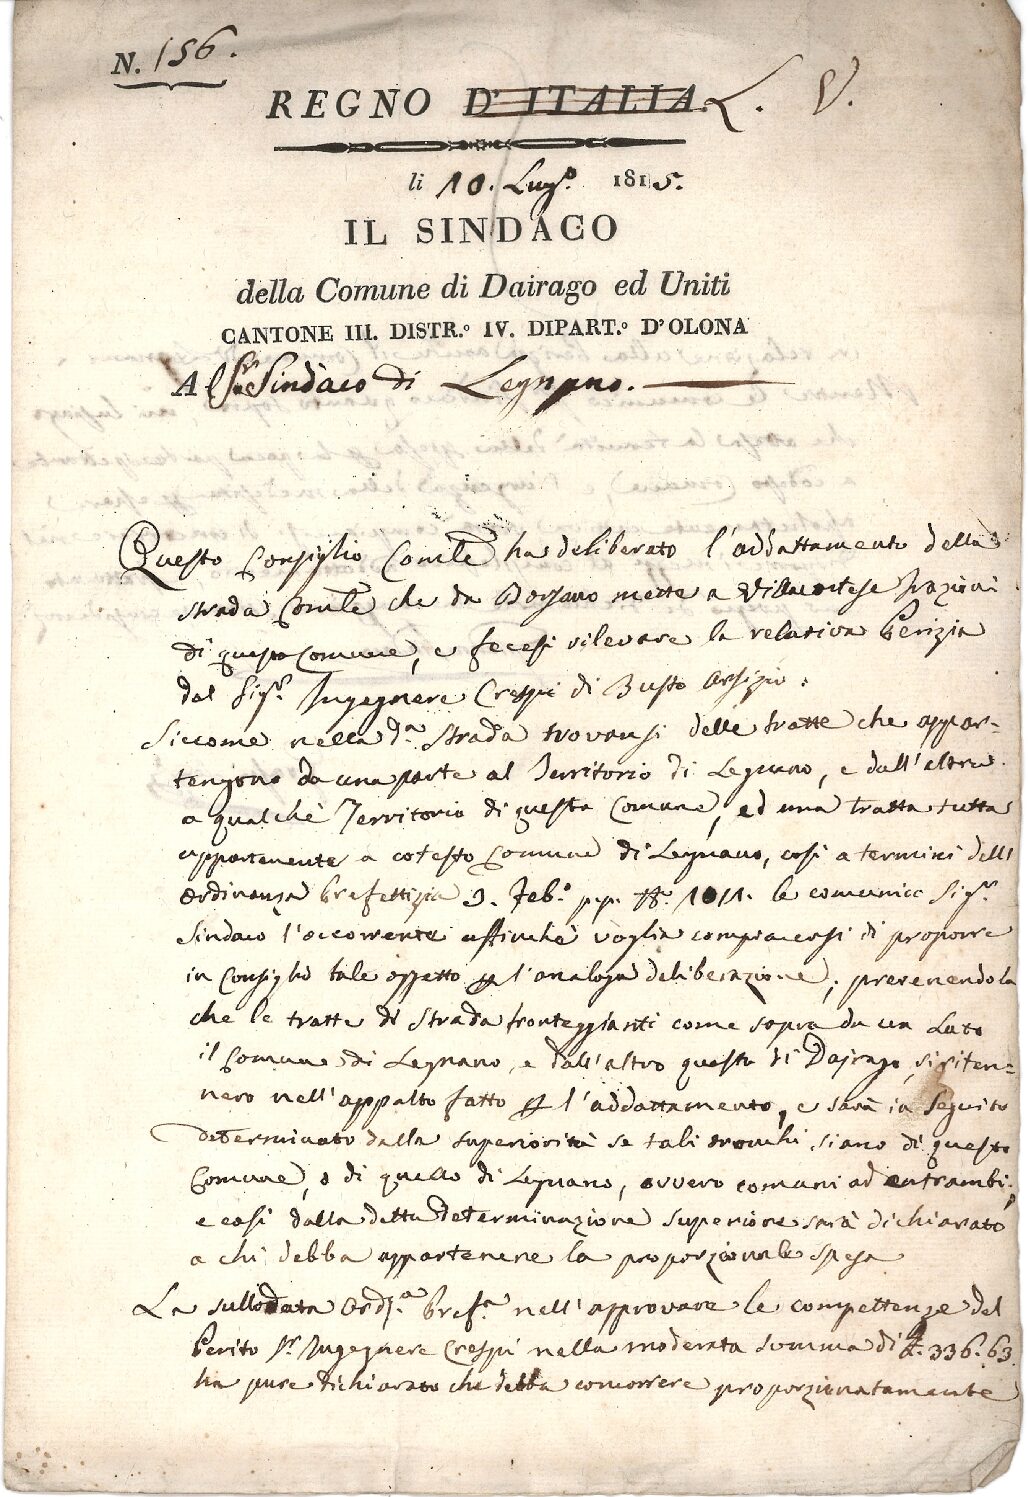 N. 156.
REGNO D'ITALIA. L. V.
li 10. Lug.o 1815.
IL SINDACO
della Comune di Dairago ed Uniti
CANTONE III. DISTR.o IV. DIPART.o D'OLONA
Al Sr. Sindaco di Legnano.
Questo Consiglio Comle ha deliberato l'addattamento della
strada Comle che da Borsano mette a Villacortese frazioni
di questa Comune, e fecesi rilevare la relativa Perizia
dal Sigr. Ingegnere Crespi di Busto Arsizio.
Siccome nella da. strada trovansi delle tratte che appar=
tengono da una parte al Territorio di Legnano, e dall'altra
a qualche Territorio di questa Comune, ed una tratta tutta
appartenente a cotesto Comune di Legnano, così a termini dell'
Ordinanza Prefettizia 3. Feb.o p.p. N.o 1011. le comunico Sigr.
Sindaco l'occorrente affinchè voglia compiacersi di proporre
in Consiglio tale oggetto p l'analoga deliberazione, prevenendola
che le tratte di strada fronteggianti come sopra da un lato
il Comune di Legnano, e dall'altro questa di Dajrago, si riten=
nero nell'appalto fatto p l'addattamento, e sarà in seguito
determinato dalla superiorità se tali tronchi siano di questo
Comune, o di quello di Legnano, ovvero comuni ad entrambi;
e così dalla detta determinazione superiore sarà dichiarato
a chi debba appartenere la proporzionale spesa
La sullodata Ord.a Pref.a nell'approvare le competenze del
Perito Sr. Ingegnere Crespi nella moderata somma di £. 336. 63
ha pure dichiarato che debba concorrere proporzionatamente